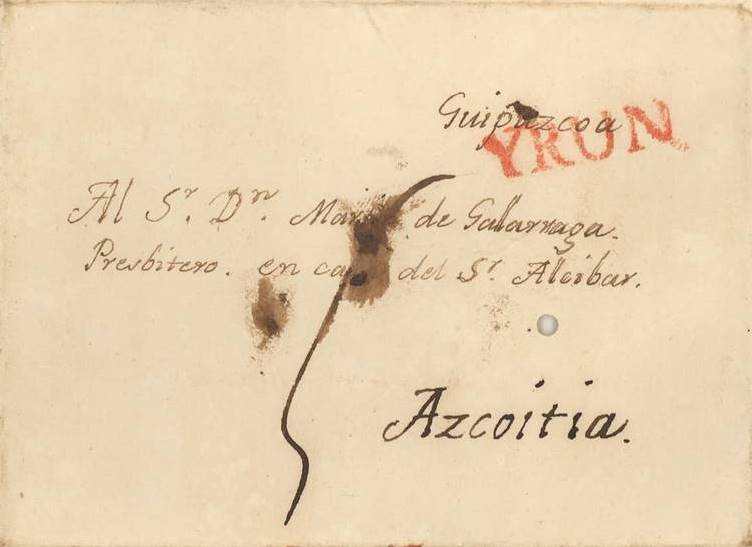 Guipuzcoa
YRUN
Al Sr. Dn. de Galarraga.
Presbitero. en casa del Sr. Alcibar.
Azcoitia.